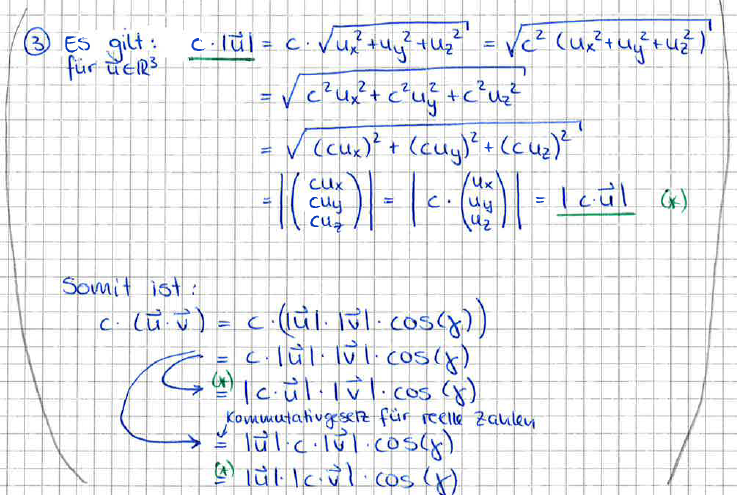 ③ Es gilt: c·|u⃗| = c·√(uₓ²+u_y²+u_z²) = √(c²(uₓ²+u_y²+u_z²))
für u⃗∈ℝ³
= √(c²uₓ²+c²u_y²+c²u_z²)
= √((cuₓ)²+(cu_y)²+(cu_z)²)
= |(cuₓ cu_y cu_z)| = |c·(uₓ u_y u_z)| = |c·u⃗| (*)
Somit ist:
c·(u⃗·v⃗) = c·(|u⃗|·|v⃗|·cos(γ))
= c·|u⃗|·|v⃗|·cos(γ)
(*) = |c·u⃗|·|v⃗|·cos(γ)
Kommutativgesetz für reelle Zahlen
= |u⃗|·c·|v⃗|·cos(γ)
(*) = |u⃗|·|c·v⃗|·cos(γ)